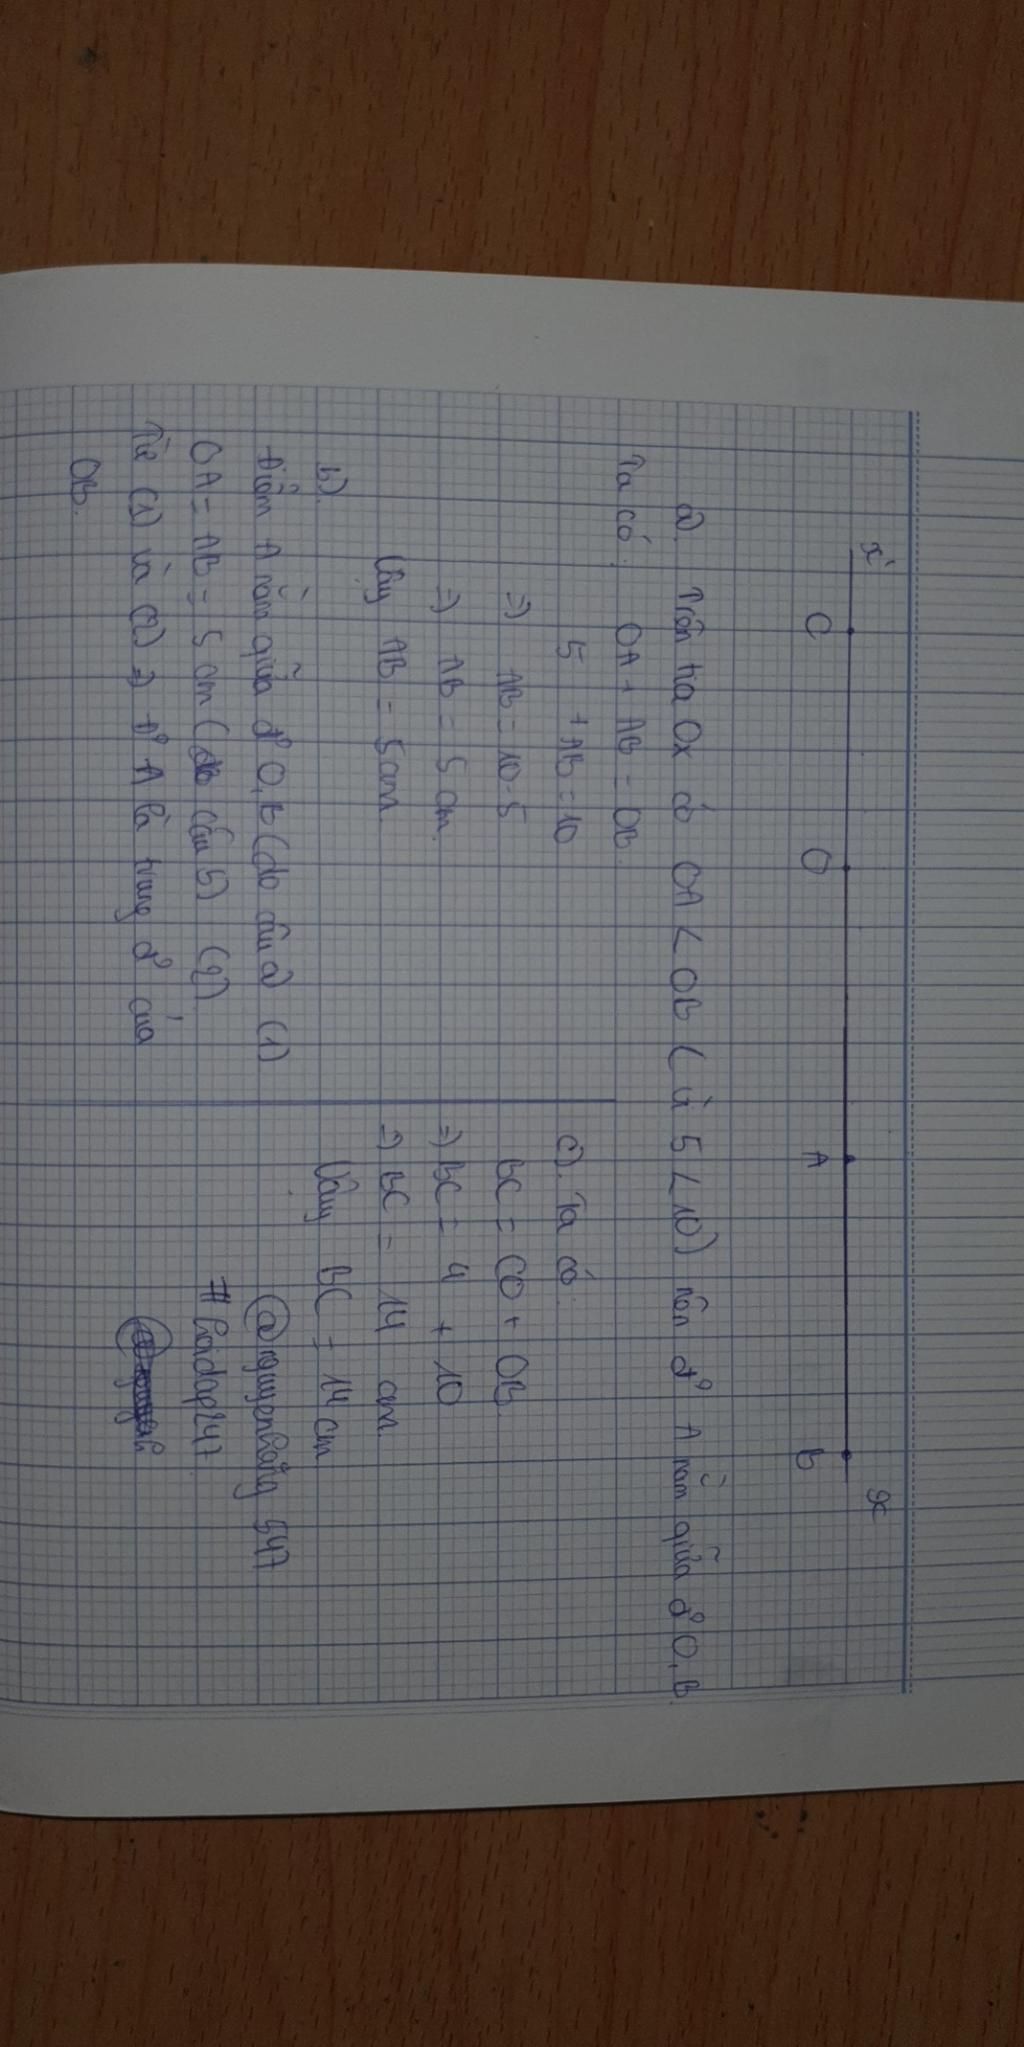 x' x
C O A B
a) Trên tia Ox có OA < OB (vì 5 < 10) nên đ² A nằm giữa đ² O, B
Ta có: OA + AB = OB.
5 + AB = 10
=> AB = 10-5
=> AB = 5 cm.
Vậy AB = 5cm.
b).
Điểm A nằm giữa đ² O, B (do câu a) (1)
OA = AB = 5 cm (do câu b) (2)
Từ (1) và (2) => đ² A là trung đ² của
OB.
c). Ta có:
BC = CO + OB.
=> BC = 4 + 10
=> BC = 14 cm.
Vậy BC = 14 cm
@nguyenhang 547
#hoidap247